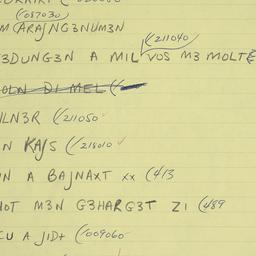 (087030)
M(ARAJNG3NUM3N
(211040)
3DUNG3N A MIL VOS M3 MOLTE
OLN DI MEL (
ULN3R (211050
N KAJS (218010
N A BAJNAXT xx (413
HOT M3N G3HARG3T ZI (489
CU A JID+ (009060